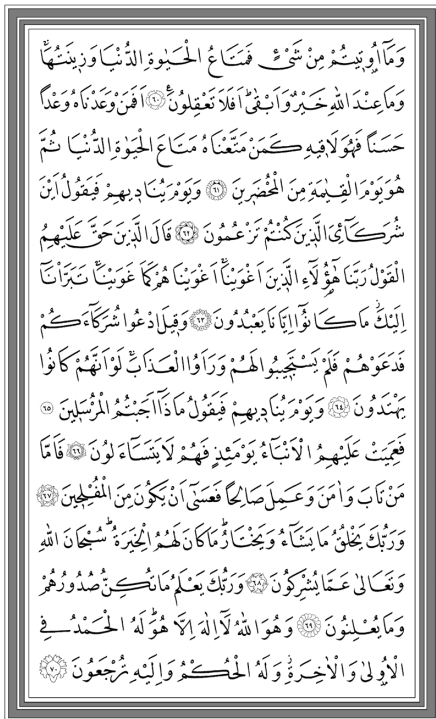 وَمَٓا اُو۫ت۪يتُمْ مِنْ شَيْءٍ فَمَتَاعُ الْحَيٰوةِ الدُّنْيَا وَز۪ينَتُهَاۚ
وَمَا عِنْدَ اللّٰهِ خَيْرٌ وَاَبْقٰىۜ اَفَلَا تَعْقِلُونَ۟ ٦٠ اَفَمَنْ وَعَدْنَاهُ وَعْداً
حَسَناً فَهُوَ لَاق۪يهِ كَمَنْ مَتَّعْنَاهُ مَتَاعَ الْحَيٰوةِ الدُّنْيَا ثُمَّ
هُوَ يَوْمَ الْقِيٰمَةِ مِنَ الْمُحْضَر۪ينَ ٦١ وَيَوْمَ يُنَاد۪يهِمْ فَيَقُولُ اَيْنَ
شُرَكَٓاءِيَ الَّذ۪ينَ كُنْتُمْ تَزْعُمُونَ ٦٢ قَالَ الَّذ۪ينَ حَقَّ عَلَيْهِمُ
الْقَوْلُ رَبَّنَا هٰٓؤُ۬لَٓاءِ الَّذ۪ينَ اَغْوَيْنَاۚ اَغْوَيْنَاهُمْ كَمَا غَوَيْنَاۚ تَبَرَّأْنَٓا
اِلَيْكَۘ مَا كَانُٓوا اِيَّانَا يَعْبُدُونَ ٦٣ وَق۪يلَ ادْعُوا شُرَكَٓاءَكُمْ
فَدَعَوْهُمْ فَلَمْ يَسْتَج۪يبُوا لَهُمْ وَرَاَوُا الْعَذَابَۚ لَوْ اَنَّهُمْ كَانُوا
يَهْتَدُونَ ٦٤ وَيَوْمَ يُنَاد۪يهِمْ فَيَقُولُ مَاذَٓا اَجَبْتُمُ الْمُرْسَل۪ينَ ٦٥
فَعَمِيَتْ عَلَيْهِمُ الْاَنْبَٓاءُ يَوْمَئِذٍ فَهُمْ لَا يَتَسَٓاءَلُونَ ٦٦ فَاَمَّا
مَنْ تَابَ وَاٰمَنَ وَعَمِلَ صَالِحاً فَعَسٰٓى اَنْ يَكُونَ مِنَ الْمُفْلِح۪ينَ ٦٧
وَرَبُّكَ يَخْلُقُ مَا يَشَٓاءُ وَيَخْتَارُۜ مَا كَانَ لَهُمُ الْخِيَرَةُۜ سُبْحَانَ اللّٰهِ
وَتَعَالٰى عَمَّا يُشْرِكُونَ ٦٨ وَرَبُّكَ يَعْلَمُ مَا تُكِنُّ صُدُورُهُمْ
وَمَا يُعْلِنُونَ ٦٩ وَهُوَ اللّٰهُ لَٓا اِلٰهَ اِلَّا هُوَۜ لَهُ الْحَمْدُ فِي
الْاُو۫لٰى وَالْاٰخِرَةِۘ وَلَهُ الْحُكْمُ وَاِلَيْهِ تُرْجَعُونَ ٧٠